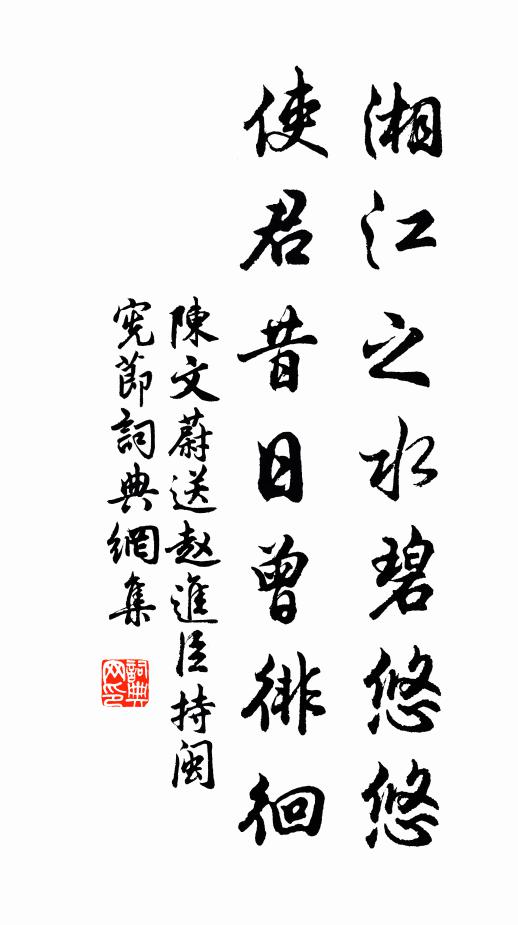 湘江之水碧悠悠
使君昔日曾徘徊
陳文蔚送赵進臣持閩
宪節詞典網集
詞典网印